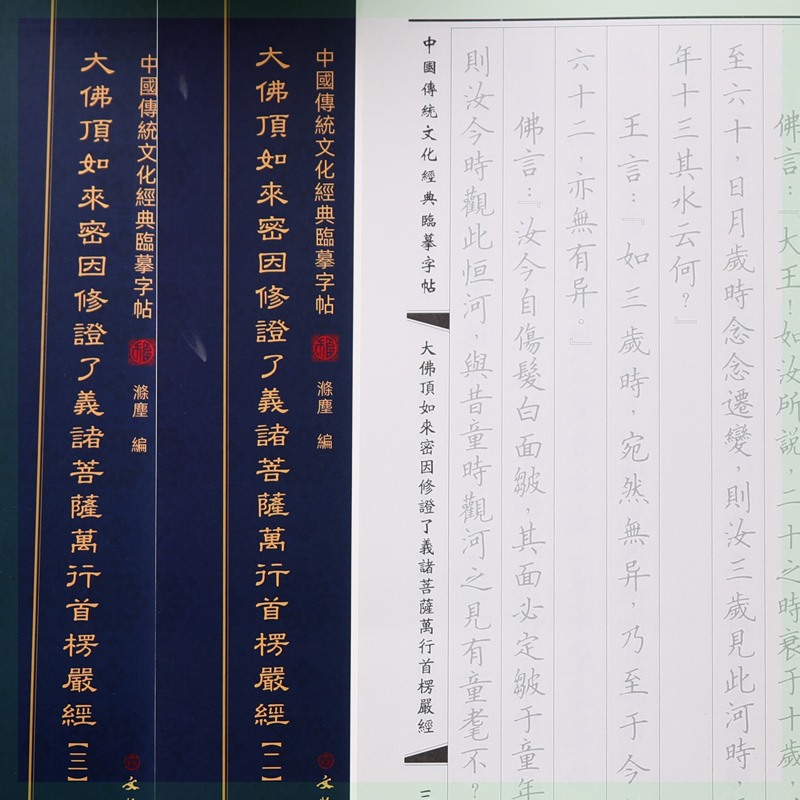 佛言：『大王！如汝所説，二十之時衰于十歲，
至六十，日月歲時念念遷變，則汝三歲見此河時，
年十三其水云何？』
王言：『如三歲時，宛然無异，乃至于今
六十二，亦無有异。』
佛言：『汝今自傷髮白面皺，其面必定皺于童年
則汝今時觀此恒河，與昔童時觀河之見有童耄不？
中國傳統文化經典臨摹字帖 大佛頂如來密因修證了義諸菩薩萬行首楞嚴經 三
中國傳統文化經典臨摹字帖 滌塵 編 文
大佛頂如來密因修證了義諸菩薩萬行首楞嚴經【二】
中國傳統文化經典臨摹字帖 滌塵 編 文
大佛頂如來密因修證了義諸菩薩萬行首楞嚴經【三】